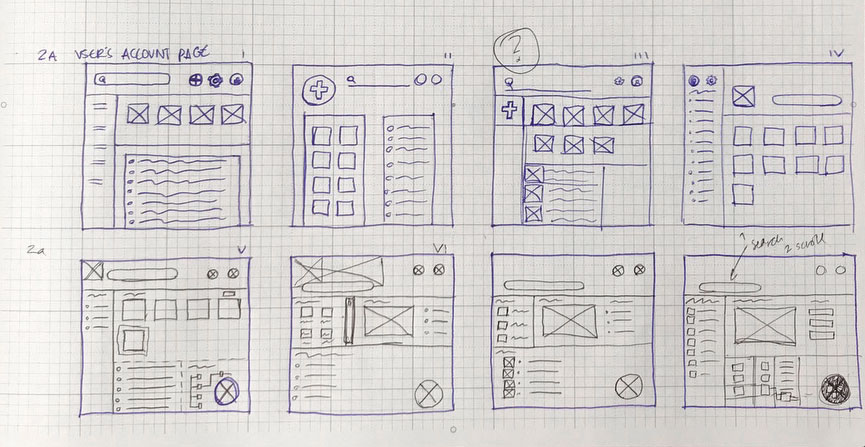 2A USER'S ACCOUNT PAGE
I
II
?
III
IV
2a
V
VI
1 search
2 scroll